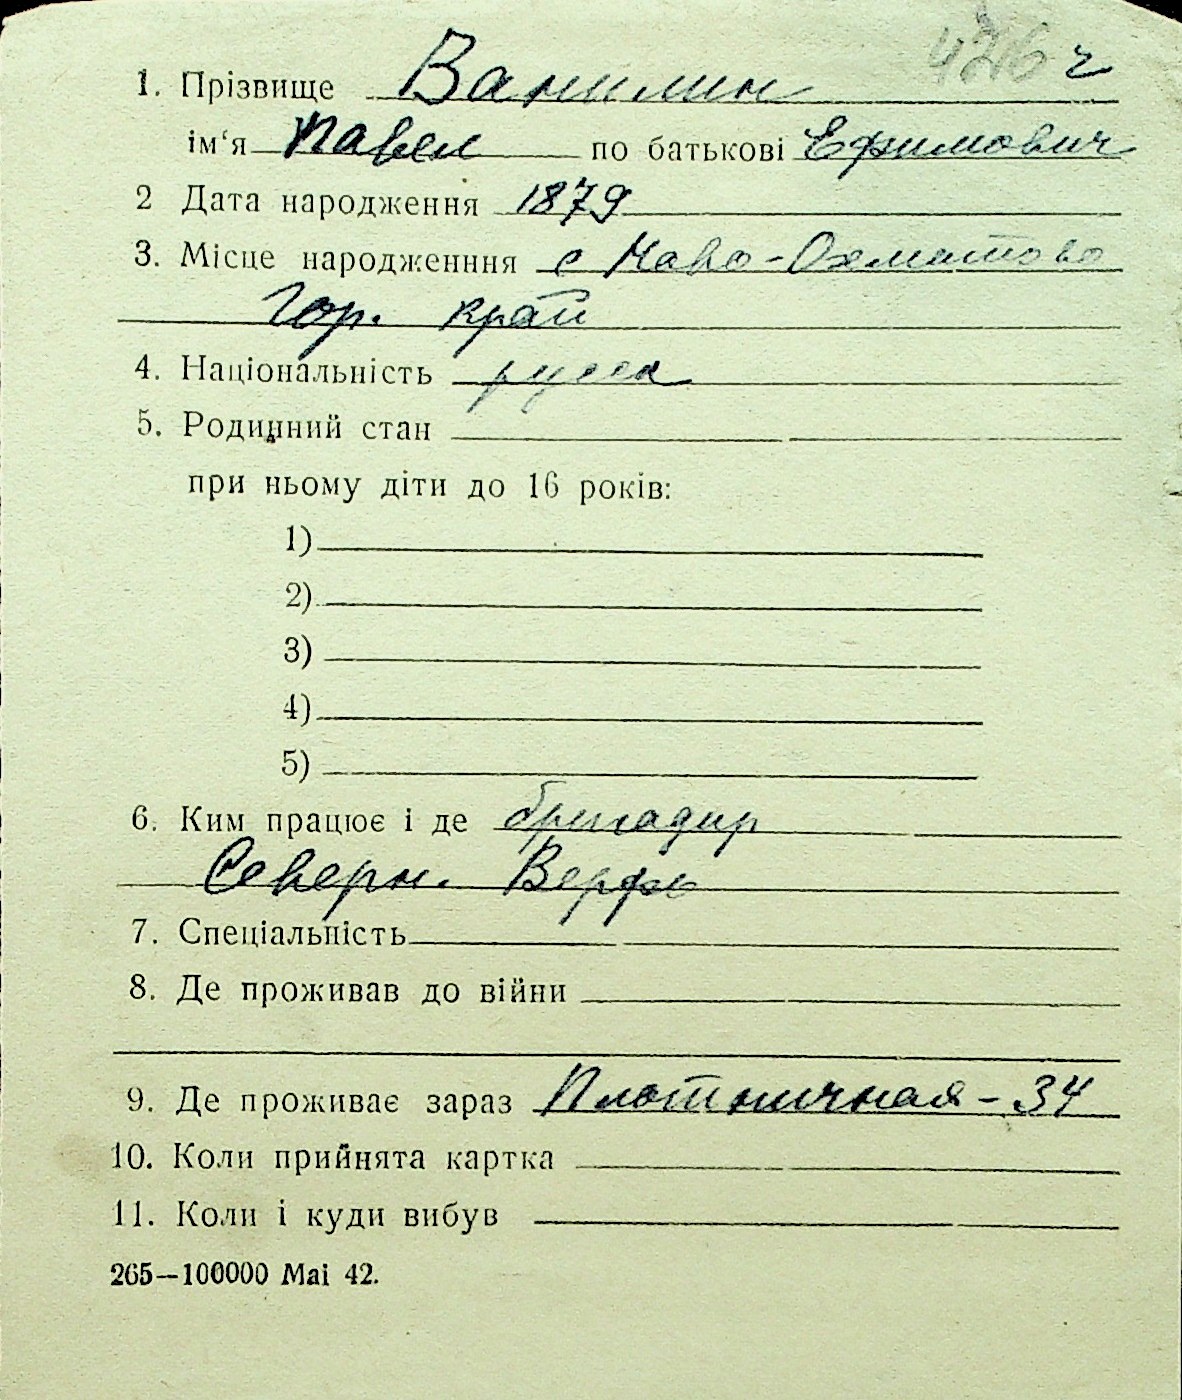 426 г
1. Прізвище Ванилин
ім‘я Павел по батькові Ефимович
2 Дата народження 1879
3. Місце народженння с Ново-Охматово
Гор. край
4. Національність русск
5. Родинний стан
при ньому діти до 16 років:
1)
2)
3)
4)
5)
6. Ким працює і де бригадир
Северн. Верфь
7. Спеціальність
8. Де проживав до війни
9. Де проживає зараз Плотничная - 34
10. Коли прийнята картка
11. Коли і куди вибув
265—100000 Mai 42.